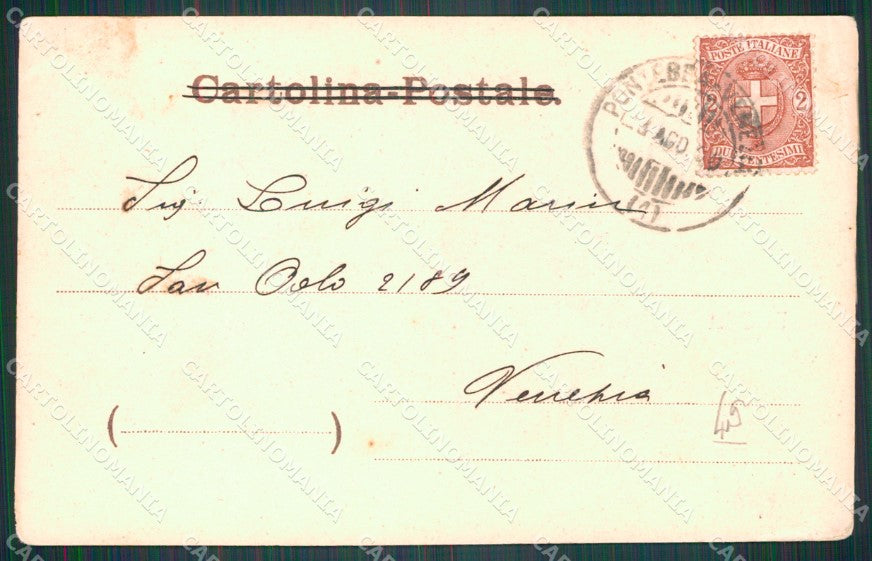 Cartolina-Postale.
POSTE ITALIANE
2 2
DUE CENTESIMI
PONTEBBA
AGO
Sig Luigi Marin
San Polo 2189
Venezia
( )
49
CARTOLINOMANIA